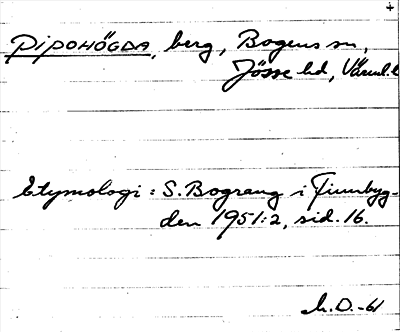 +
PIPOHÖGDA, berg, Bogens sn,
Jösse hd, Värml. l
Etymologi: S. Bograng i Finnbyg-
den 1951:2, sid. 16.
M.D.-61